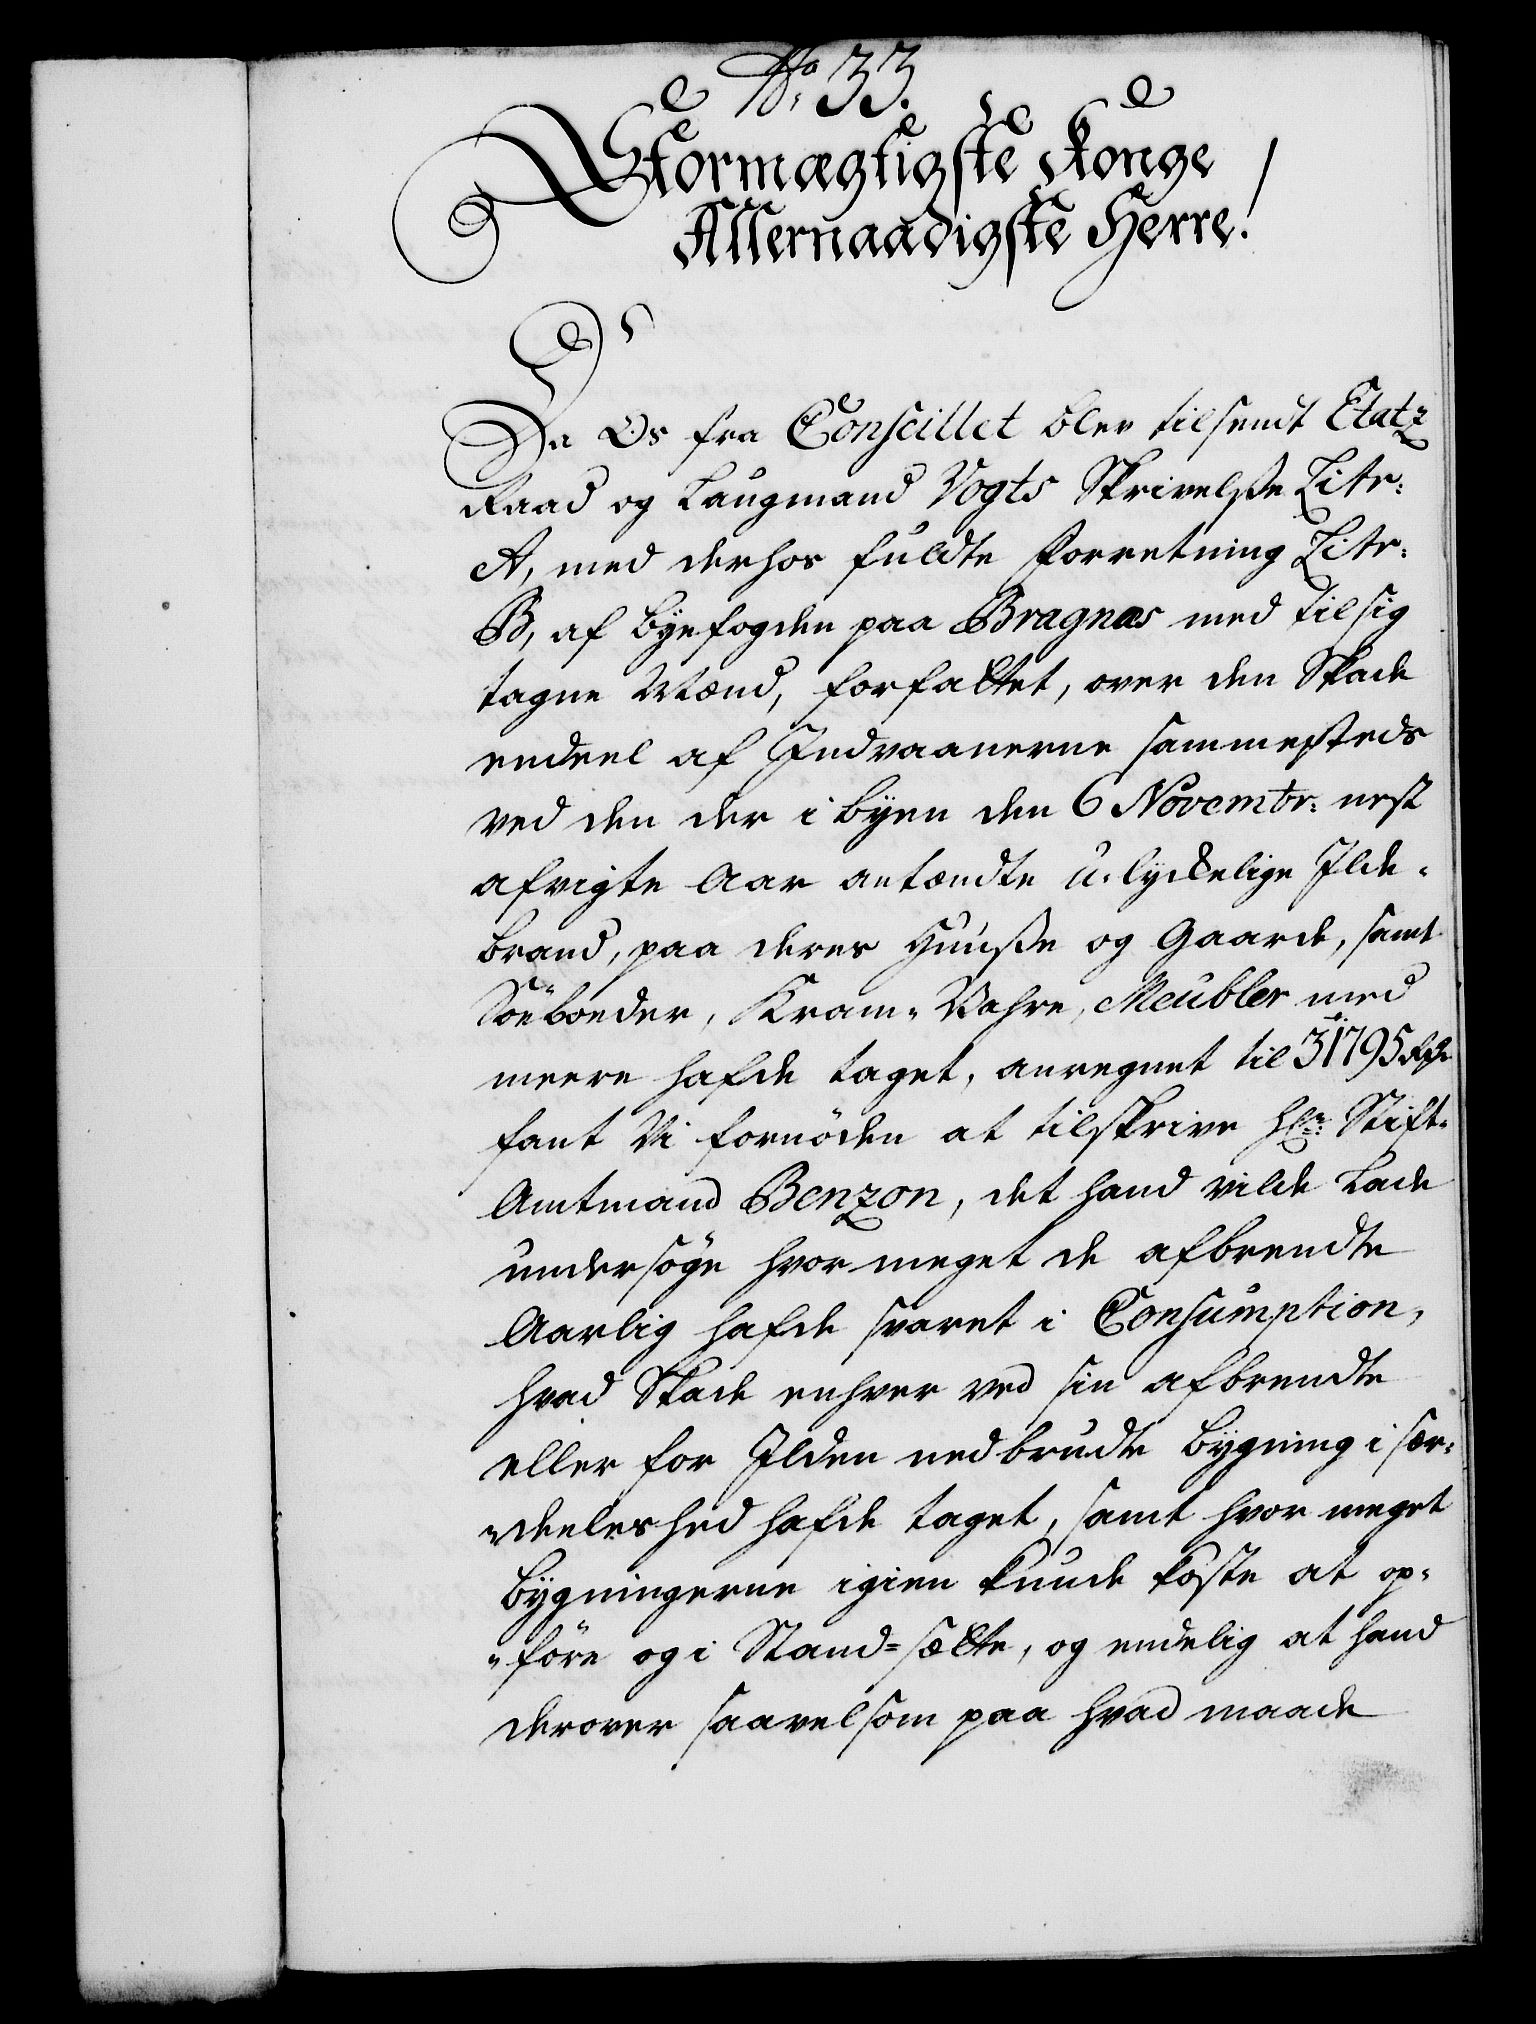 No. 33.
Stormægtigste Konge
Allernaadigste Herre!
Da Os fra Conseillet blev tilsendt Etatz
Raad og Laugmand Vogts Skrivelsse Litr:
A, med derhos fuldte Forretning Litr:
B, af byefogden paa Bragnæs med tilsig
tagne Mænd, forfattet, over den Skade
endeel af Indvaanerne sammesteds
ved den der i byen den 6 Novembr: nest
afvigte Aar antændte u-lyckelige Ilde-
brand, paa deres Huusse og Gaarde, samt
Söeboeder, Kram-Vahre, Meubler med
meere hafde taget, anregnet til 31795 Rdr.
fant Vi fornöden at tilskrive Hr: Stift-
Amtmand Benzon, det hand vilde Lade
undersöge hvor meget de afbrendte
Aarlig hafde svaret i Consumption,
hvad Skade enhver ved sin afbrendte
eller for Ilden nedbrudte bygning i sær-
-deeleshed hafde taget, samt hvor meget
bygningerne igien kunde koste at op-
-före og i Stand=sætte, og endelig at hand
derover saavelsom paa hvad maade